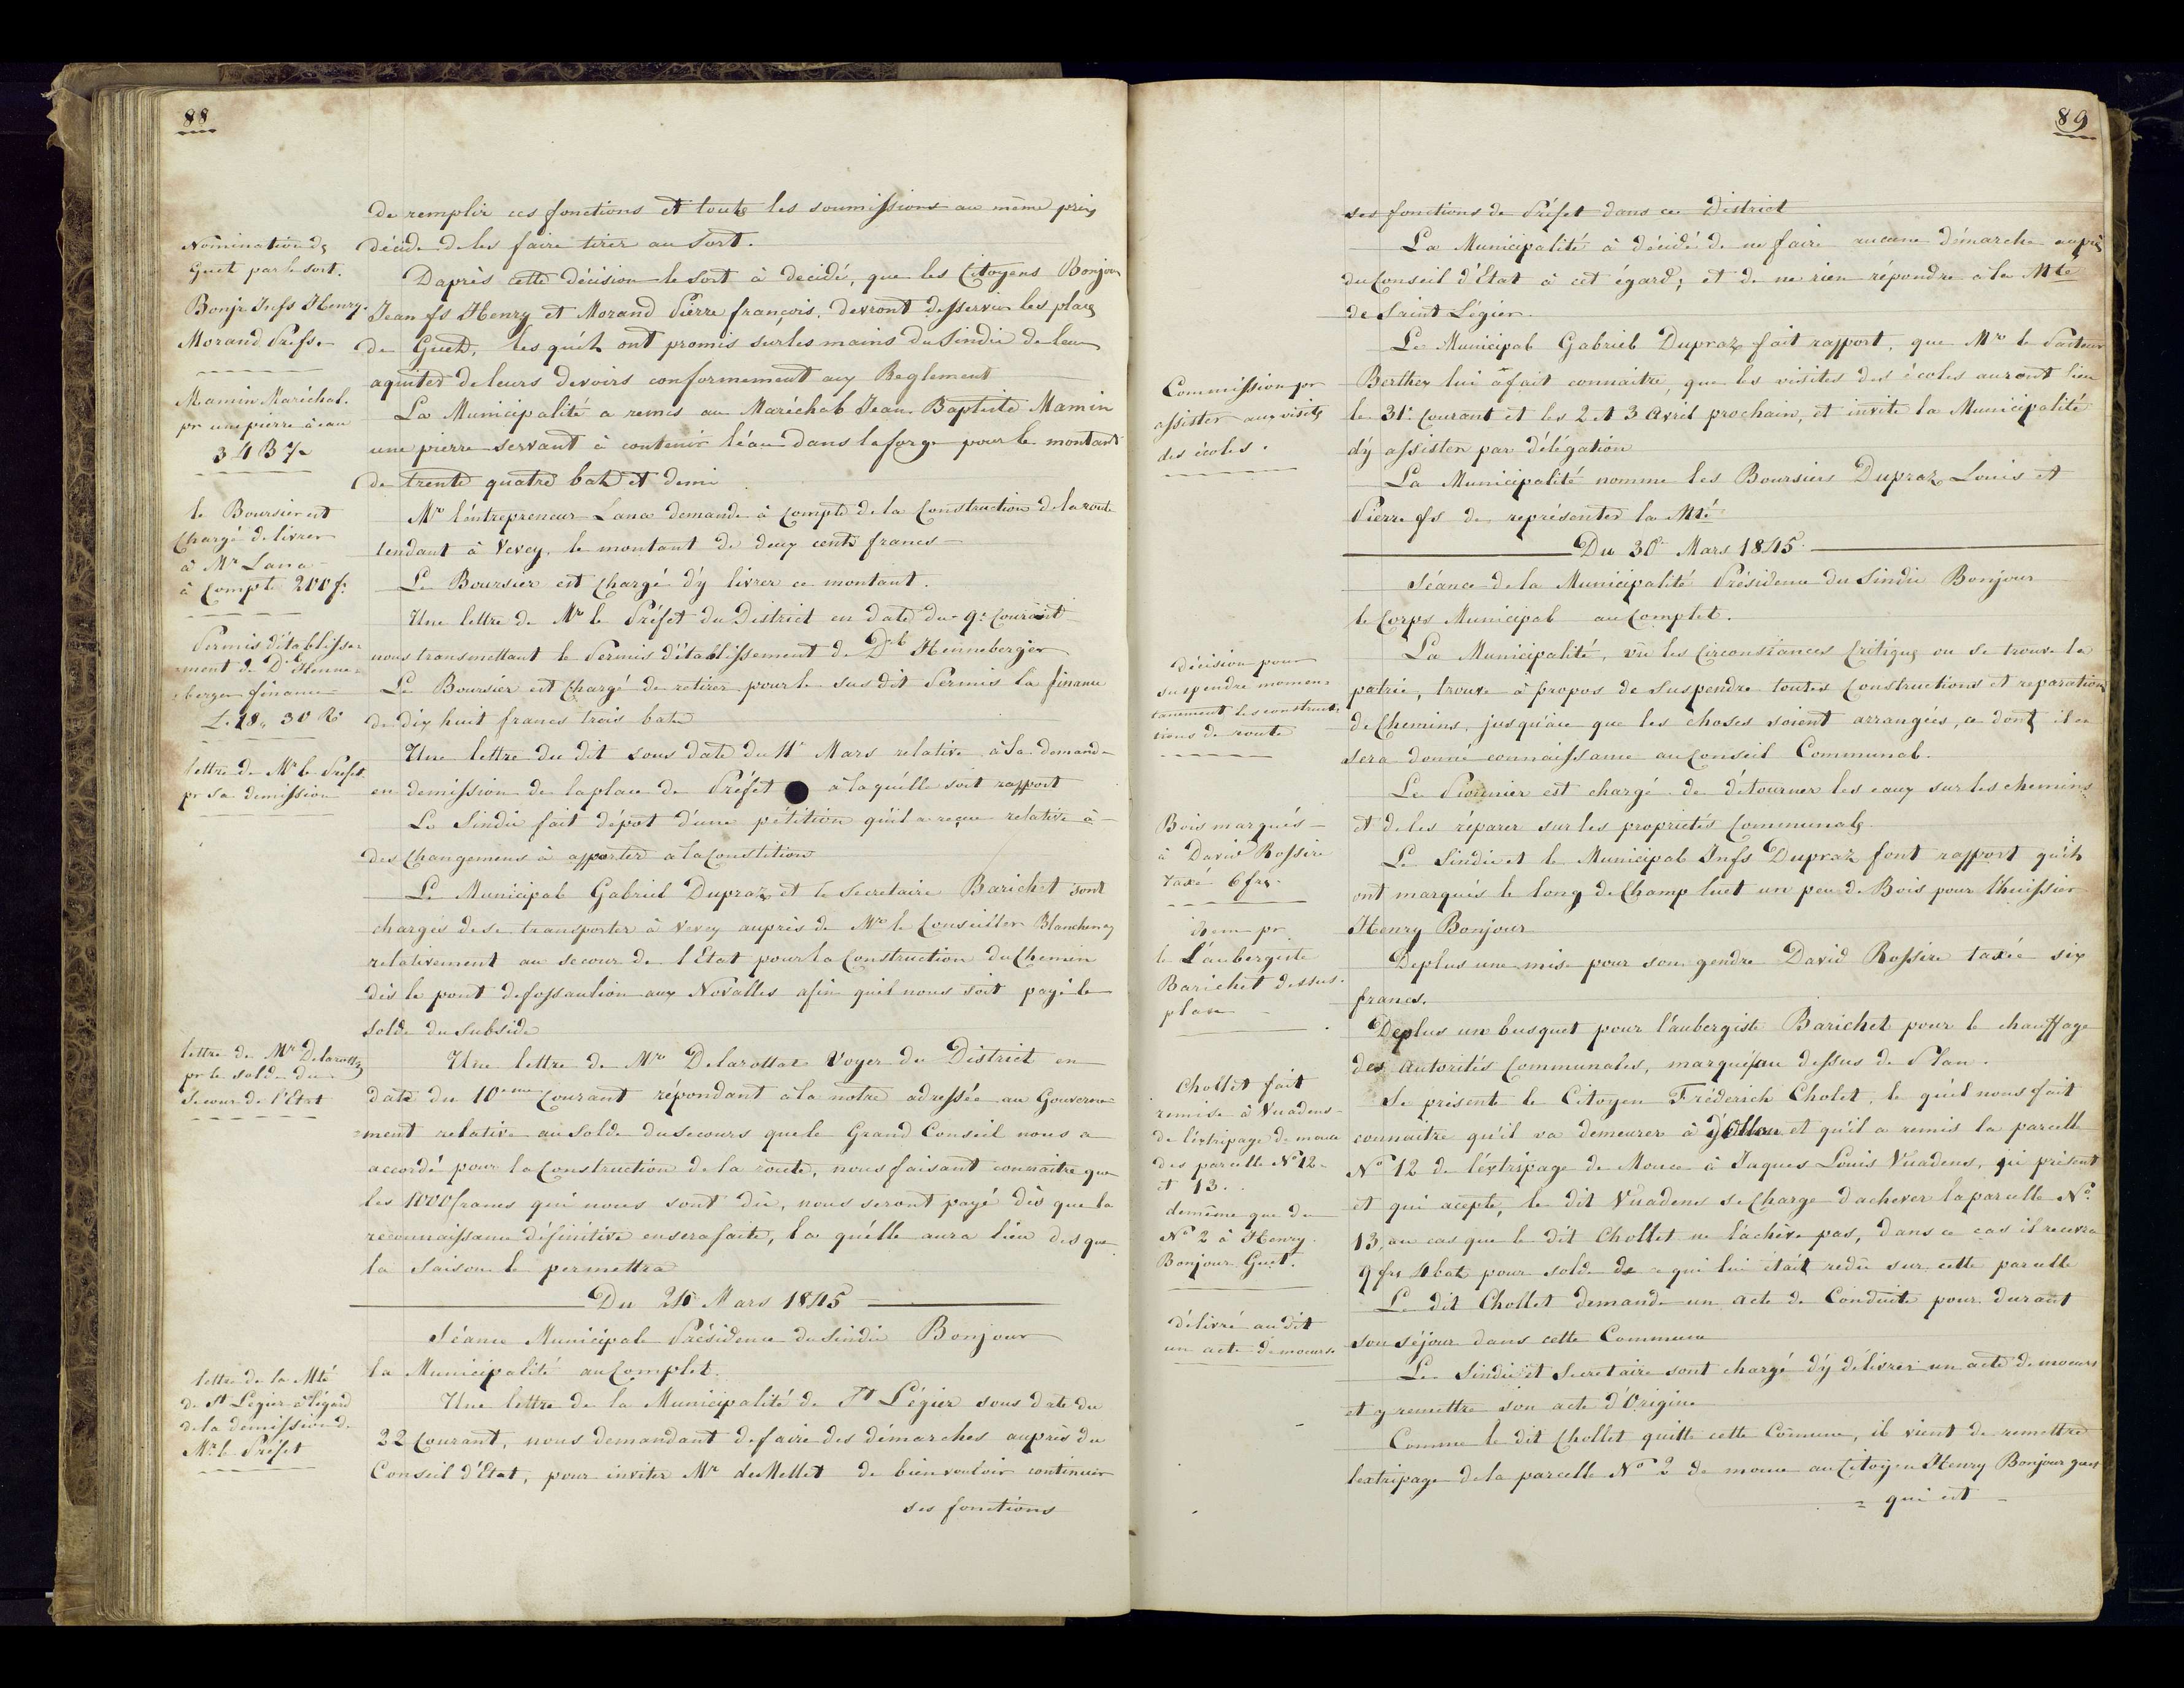 88
de remplir ces fonctions et touts les soumissions au même prix
décide de les faire tirer au sort.
Nomination des
Guet par le sort.
Bonjr Jn fs Henry.
Morand Pre fs.
Daprès cette décision le sort à decidé, que les Citoyens Bonjour
Jean fs Henry et Morand Pierre françois. devront desservir les places
de Guet, les quéls ont promis sur les mains du Sindic de leur
aquiter de leurs devoirs conformement aux Reglement
Mamin Maréchal.
pr une pierre à eau
34 B 7.
La Municipalité a remis au Maréchal Jean Baptiste Mamin
une pierre servant à contenir léau dans la forge pour le montant
de trente quatre batz et demi
le Boursier est
Chargé de livrer
à Mr Lana
à compte 200 f.
Mr l'entrepreneur Lana demande à compte de la Construction de la route
tendant à Vevey, le montant de deux cents francs
Le Boursier est Chargé d'y livrer ce montant.
Permis d'établisse
ment de Dl Henne
berger finance
L. 18. 30 R
Une lettre de Mr le Préfet du District en date du 9e Courant
nous transmettant le Permis d'établissement de Dl Henneberger
Le Boursier est Chargé de retirer pour le sus dit Permis la finance
de dix huit francs trois batz
lettre de Mr le Préfet
pr sa demission
Une lettre du dit sous date du 11e Mars relative à sa demande
en demission de la place de Préfet à la quélle soit rapport
Le Sindic fait dépot d'une pétition qu'il a reçue relative à
des Changemens à apporter a la Constitution
Le Municipal Gabriel Dupraz et le Secretaire Barichet sont
chargés de se transporter à Vevey auprès de Mr le Conseiller Blanchenay
relativement au secour de l'Etat pour la Construction du Chemin
dès le pont de fossaulion aux Novalles afin quil nous soit payé le
solde du subside
lettre de Mr Delarottaz
pr le solde du
Secour de l'Etat
Une lettre de Mr Delarottaz Voyer du District en
date du 10eme Courant répondant à la notre adressée au Gouverne=
=ment relative au solde du secours que le Grand Conseil nous a
accordé pour la Construction de la route, nous faisant connaitre que
les 1000 francs qui nous sont dû, nous seront payé dès que la
reconnaissance définitive en sera faite, la quélle aura lieu dès que
la Saison le permettra
Du 24 Mars 1845
Séance Municipale Présidence du Sindic Bonjour
la Municipalité au Complet.
lettre de la Mté
de St Légier à l'égard
de la démission de
Mr le Préfet
Une lettre de la Municipalité de St Légier sous date du
22 Courant, nous demandant de faire des démarches auprès du
Conseil d'Etat, pour inviter Mr de Mellet de bien vouloir continuer
ses fonctions
89
ses fonctions de Préfet dans ce District
La Municipalité à décidé de ne faire aucune démarche auprès
du Conseil d'Etat à cet égard; et de ne rien répondre a la Mté
de Saint Légier.
Commission pr
assister aux visites
des écoles.
Le Municipal Gabriel Dupraz fait rapport, que Mr le Pasteur
Berthex lui à fait connaitre, que les visites des écoles auront lieu
le 31e Courant et les 2 et 3 Avril prochain, et invite la Municipalité
d'y assister par délégation
La Municipalité nomme les Boursiers Dupraz Louis et
Pierre fs de représenter la Mté
Du 30e Mars 1845.
Séance de la Municipalité Présidence du Sindic Bonjour
le Corps Municipal au Complet.
décision pour
suspendre momen=
tanement les construc
tions de route
La Municipalité, vû les Circonstances Critiques ou se trouve la
patrie, trouve à propos de suspendre toutes Constructions et reparations
de Chemins, jusqu'ace que les choses soient arrangées, ce dont il en
sera donné connaissance au Conseil Communal.
Le Pionnier est chargé de détourner les eaux sur les chemins
et de les réparer sur les proprietés Communales.
Bois marqués
à David Rossire
taxé 6 frs.
Le Sindic et le Municipal Jn fs Dupraz font rapport qu'ils
ont marqués le long de Champ luet un peu de Bois pour l'huissier
Henry Bonjour
Deplus une mise pour son gendre David Rossire taxée six
francs.
Item pr
le L'aubergiste
Barichet dessus
plan
Deplus un busquet pour l'aubergiste Barichet pour le chauffage
des autorités Communales, marqué au dessus de Plan.
Chollet fait
remise à Vuadens
de l'extripage de mouce
des parcelle No 12
et 13.
demême que du
No 2 à Henry
Bonjour Guet.
Se présente le Citoyen Fréderich Cholet, le quél nous fait
connaitre qu'il va demeurer à d'Ollon et qu'il a remis la parcelle
No 12 de l'extripage de Mouce à Jaques Louis Vuadens, ici présent
et qui acepte, le dit Vuadens se Charge d'achever la parcelle No
13, au cas que le dit Chollet ne l'achève pas, dans ce cas il recevra
9 frs 4 batz pour solde de ce qui lui était redû sur cette parcelle
délivré au dit
un acte de moeurs
Le dit Chollet demande un acte de Conduite pour durant
son séjour dans cette Commune
Le Sindic et Secretaire sont chargé d'y délivrer un acte de moeurs
et y remettre son acte d'Origine
Comme le dit Chollet quitte cette Comune, il vient de remettre
lextripage de la parcelle No 2 de mouce au Citoyen Henry Bonjour guet
= qui est